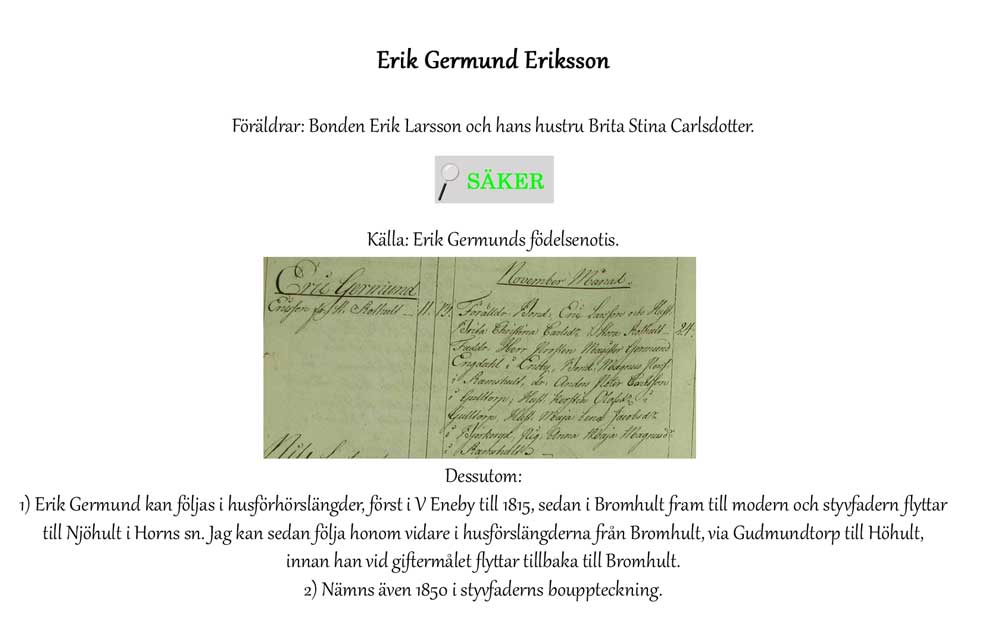 Erik Germund Eriksson
Föräldrar: Bonden Erik Larsson och hans hustru Brita Stina Carlsdotter.
SÄKER
Källa: Erik Germunds födelsenotis.
Eric Germund
November Månad.
11. 13. Föräldr. Bond. Eric Larsson och Hust.
Brita Christina Carlsdr 24.
Faddr. Herr Germund
Engdahl i Eneby, Bond. Magnus
i Ramshult, dr. Anders Peter Carlsson
i Gulltorp, Hust. Kerstin Olofsdr i
Gulltorp, Hust. Maja Lena
i Pig. Anna Maja Magnusdr
i Ramshult
Nils
Dessutom:
1) Erik Germund kan följas i husförhörslängder, först i V Eneby till 1815, sedan i Bromhult fram till modern och styvfadern flyttar
till Njöhult i Horns sn. Jag kan sedan följa honom vidare i husförslängderna från Bromhult, via Gudmundtorp till Höhult,
innan han vid giftermålet flyttar tillbaka till Bromhult.
2) Nämns även 1850 i styvfaderns bouppteckning.